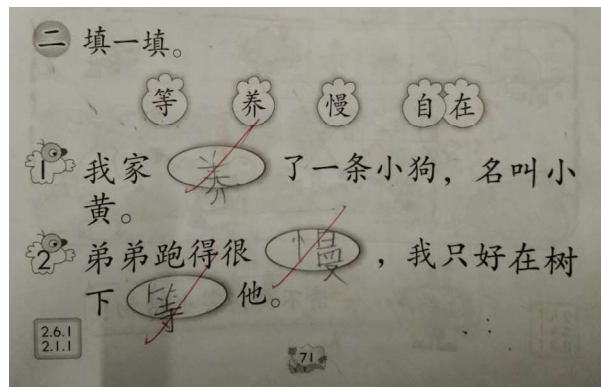 二 填一填。
等 养 慢 自在
1 我家 养 了一条小狗，名叫小
黄。
2 弟弟跑得很 慢 ，我只好在树
下 等 他。
2.6.1
2.1.1
71